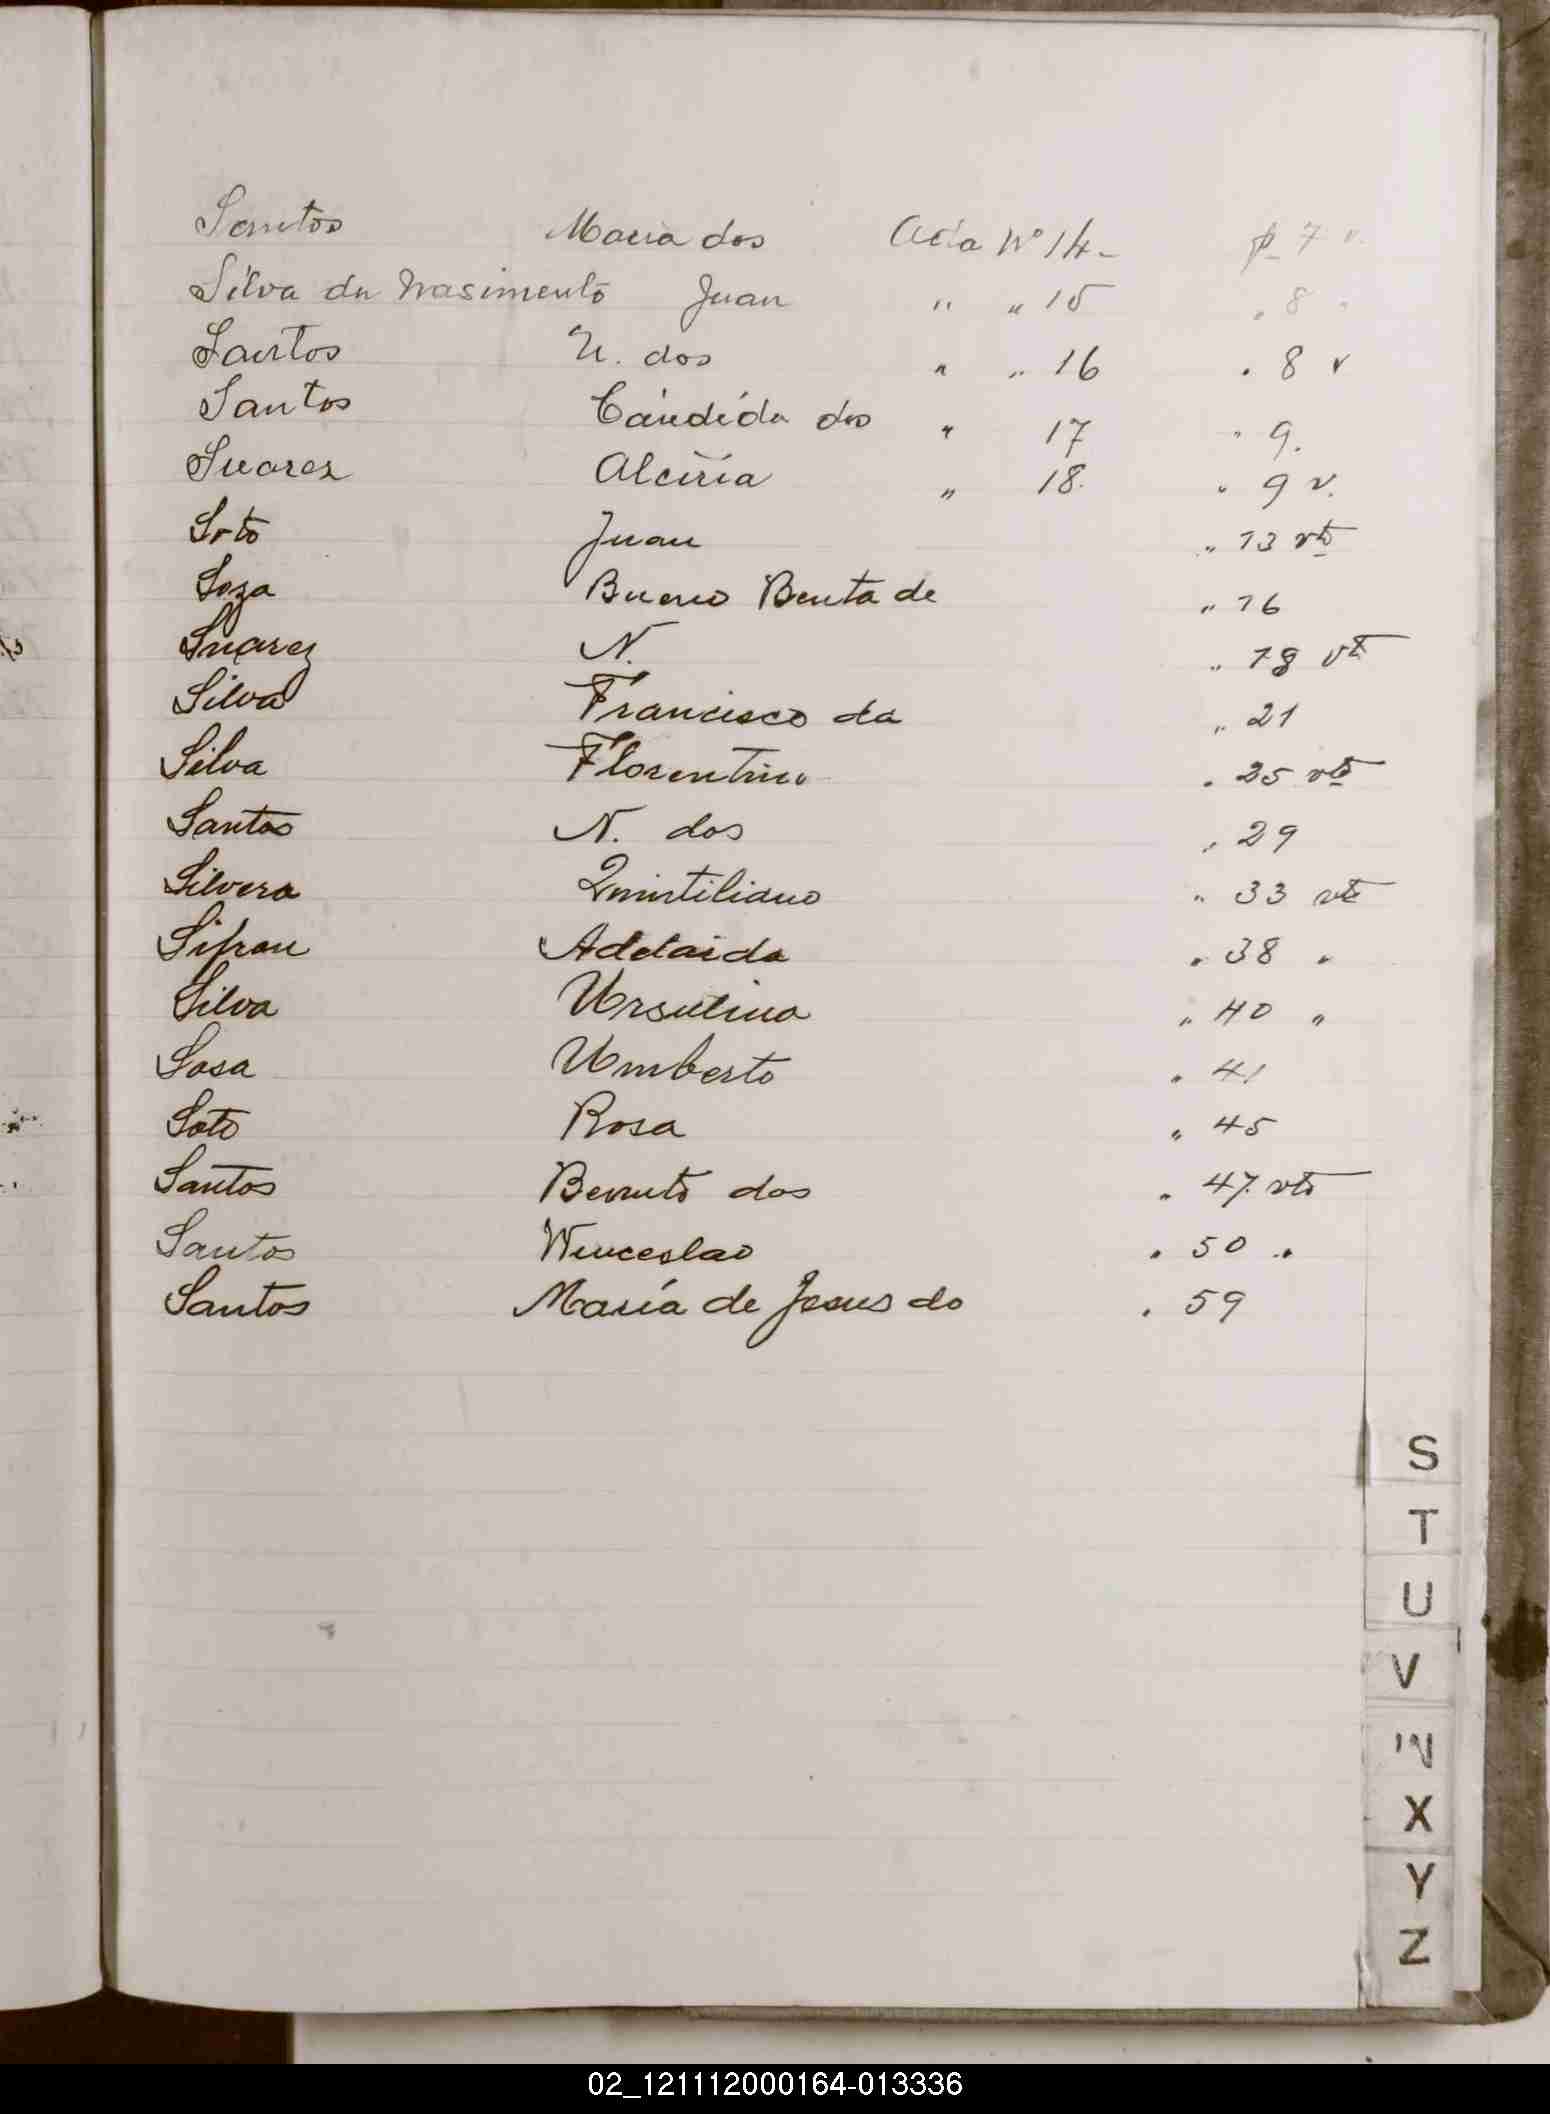 Santos Maria dos Acta Nº 14- p. 7 v.
Silva du Nasimento Juan " " 15 . 8 .
Santos N. dos " " 16 . 8 v
Santos Cándida dos " 17 " 9.
Suarez Alciria " 18. " 9 v.
Soto Juan " 13 vto
Soza Bueno Benta de " 16
Suarez N. " 18 vto
Silva Francisco da " 21
Silva Florentino . 25 vto
Santos N. dos " 29
Silvera Quintiliano " 33 vto
Sifran Adelaida " 38 "
Silva Ursulina " 40 "
Sosa Umberto " 41
Soto Rosa " 45
Santos Benuto dos " 47 vto
Santos Wenceslao " 50 "
Santos María de Jesus do . 59
S
T
U
V
W
X
Y
Z
02_121112000164-013336